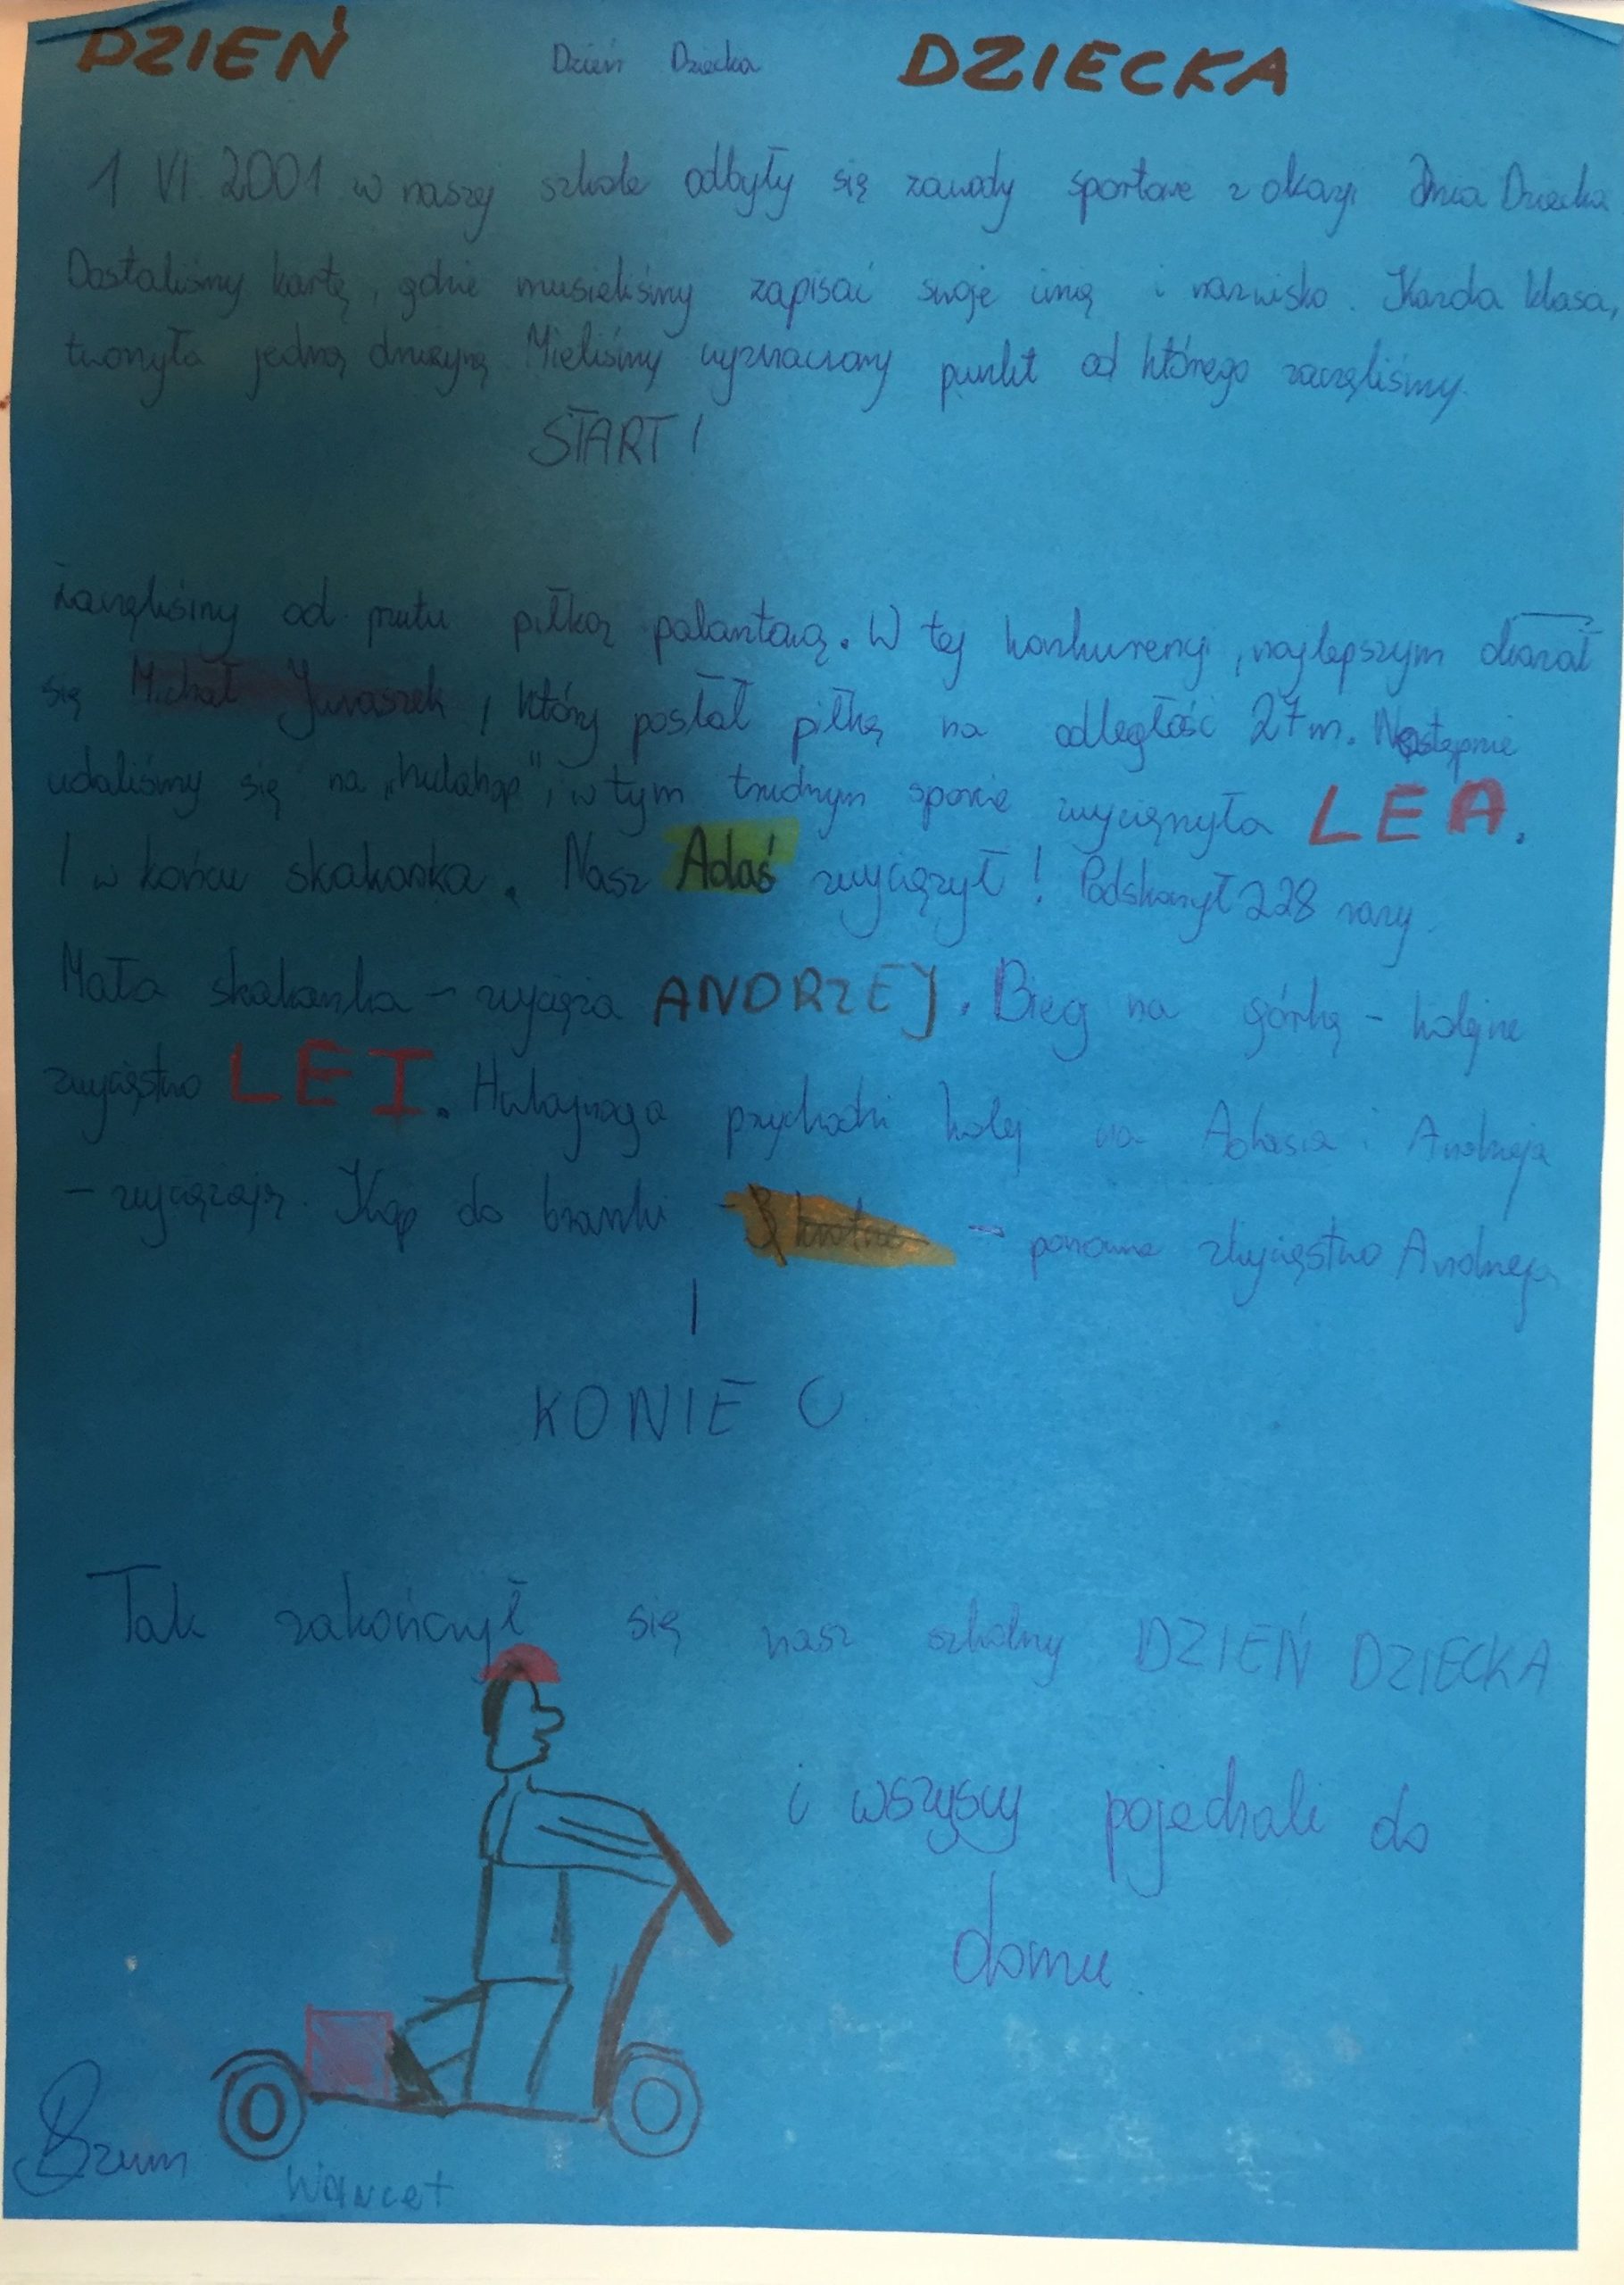 DZIEŃ Dzień Dziecka DZIECKA
1 VI 2001 w naszej szkole odbyły się zawody sportowe z okazji Dnia Dziecka
Dostaliśmy kartę, gdzie musieliśmy zapisać swoje imię i nazwisko. Każda klasa,
tworzyła jedną drużynę Mieliśmy wyznaczony punkt od którego zaczęliśmy.
START!
Zaczęliśmy od rzutu piłką palantową. W tej konkurencji, najlepszym okazał
się Michał Juraszek, który posłał piłkę na odległość 27m. Następnie
udaliśmy się na „hulahop", w tym trudnym sporcie zwyciężyła LEA.
I w końcu skakanka. Nasz Adaś zwyciężył! Podskoczył 228 razy.
Mała skakanka - zwycięża ANDRZEJ. Bieg na górkę - kolejne
zwycięstwo LEI. Hulajnoga przychodzi kolej na Adasia i Andrzeja
- zwyciężają. Kop do bramki - - ponowne zwycięstwo Andrzeja
KONIEC
Tak zakończył się nasz szkolny DZIEŃ DZIECKA
i wszyscy pojechali do
domu
Bzum